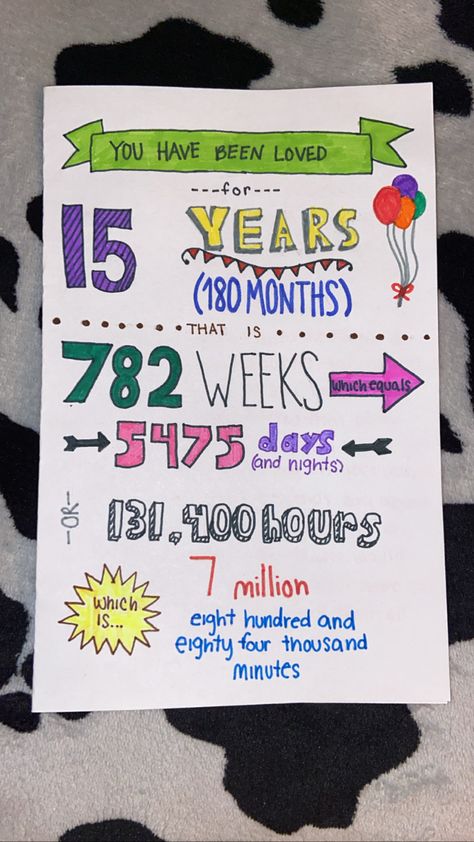 YOU HAVE BEEN LOVED
---for---
15 YEARS
(180 MONTHS)
THAT IS
782 WEEKS which equals
5475 days
(and nights)
-OR- 131,400 hours
which is... 7 million
eight hundred and
eighty four thousand
minutes